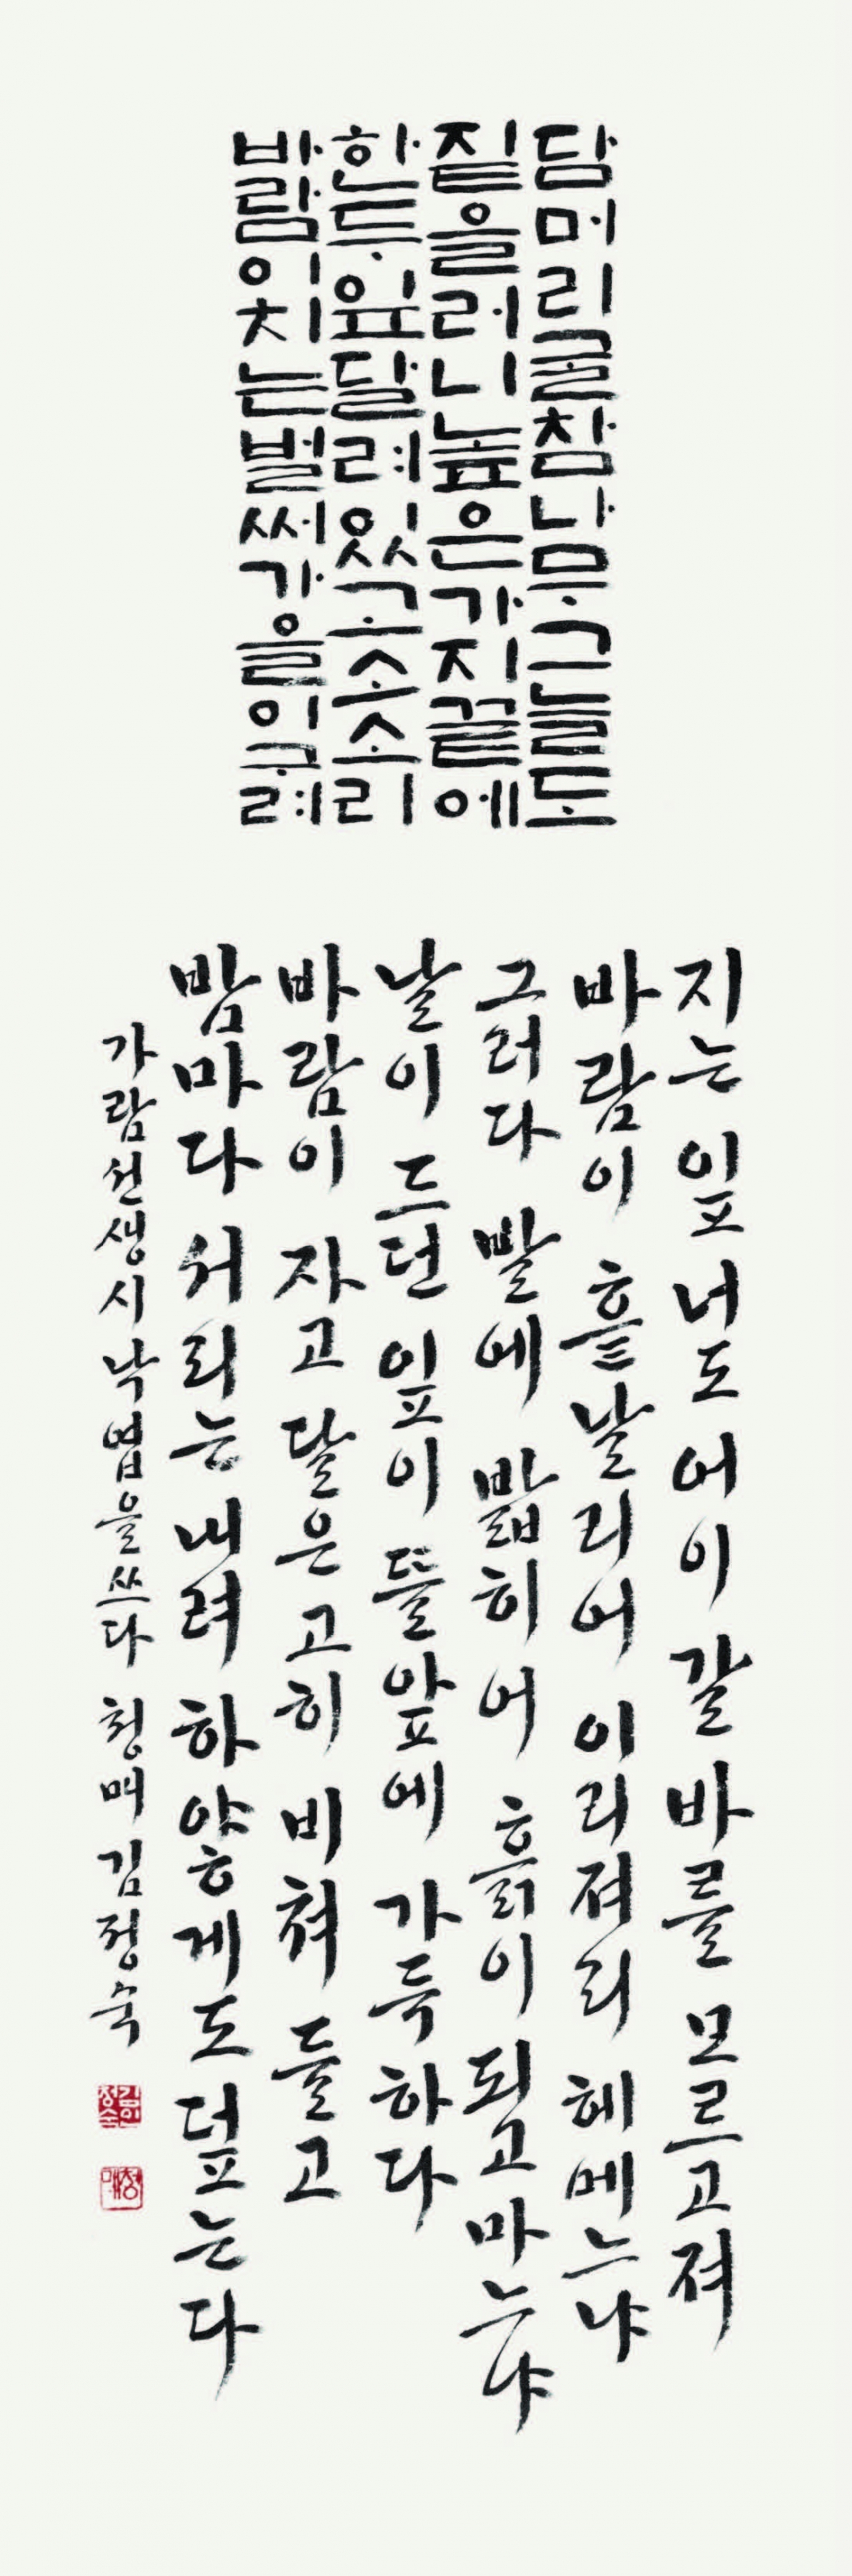 담머리굴참나무그늘도
짙을러니높은가지끝에
한두잎달려있고소소리
바람이치는벌써가을이구려
지는 잎 너도 어이 갈 바를 모르고 져
바람이 흩날리어 이리져리 헤메느냐
그러다 발에 밟히어 흙이 되고 마느냐
날이 드던 잎이 뜰앞에 가득하다
바람이 자고 달은 고히 비쳐 들고
밤마다 서리는 내려 하얗게도 덮는다
가람선생시 낙엽을 쓰다 청매 김정숙
김정숙
청매